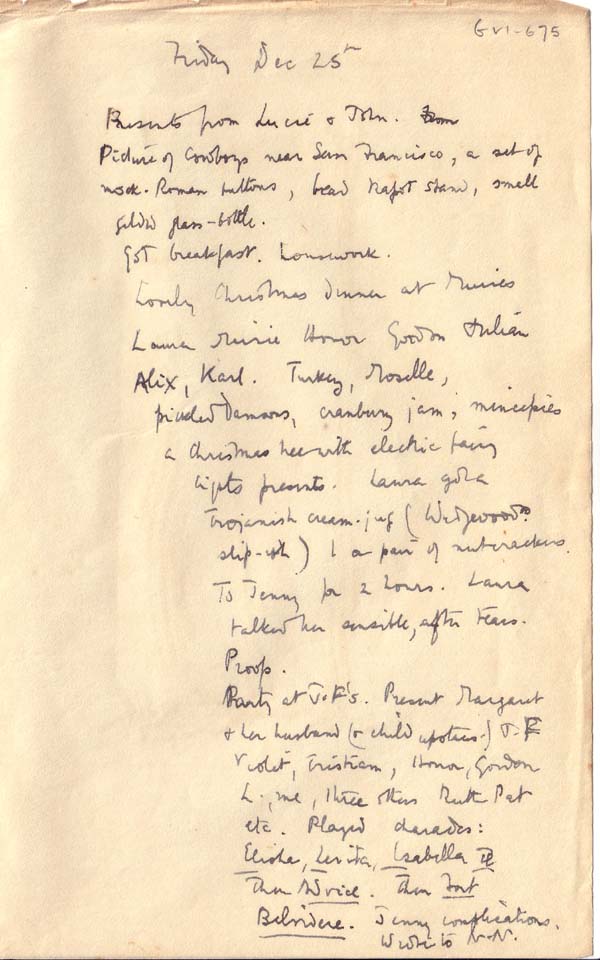 GVI-675
Friday Dec 25th
Presents from Lucie & John. From
Picture of Cowboys near San Francisco, a set of
mock-Roman buttons, bead stand, small
glass-bottle.
Got breakfast. Housework.
Lovely Christmas dinner at Muiries
Laura Muirie Honor Gordon Julian
Alix, Karl. Turkey, Moselle,
pickled Damsons, cranbury jam, mincepies
a Christmas tree with electric fairy
lights presents. Laura got a
Trojanish cream-jug (Wedgewood
slip-) I a pair of nutcrackers.
To Jenny for 2 hours. Laura
talked her sensible, after tears.
Proofs.
Party at J-F's. Present Margaret
& her husband (& child upstairs) J-F
Violet, Tristram, Honor, Gordon
L., me, three others Ruth Pat
etc. Played charades:
Elisha, Levita, Isabella II
Then Advice. Then Fort
Belvidere. Jenny complications.
Wrote to N.N.